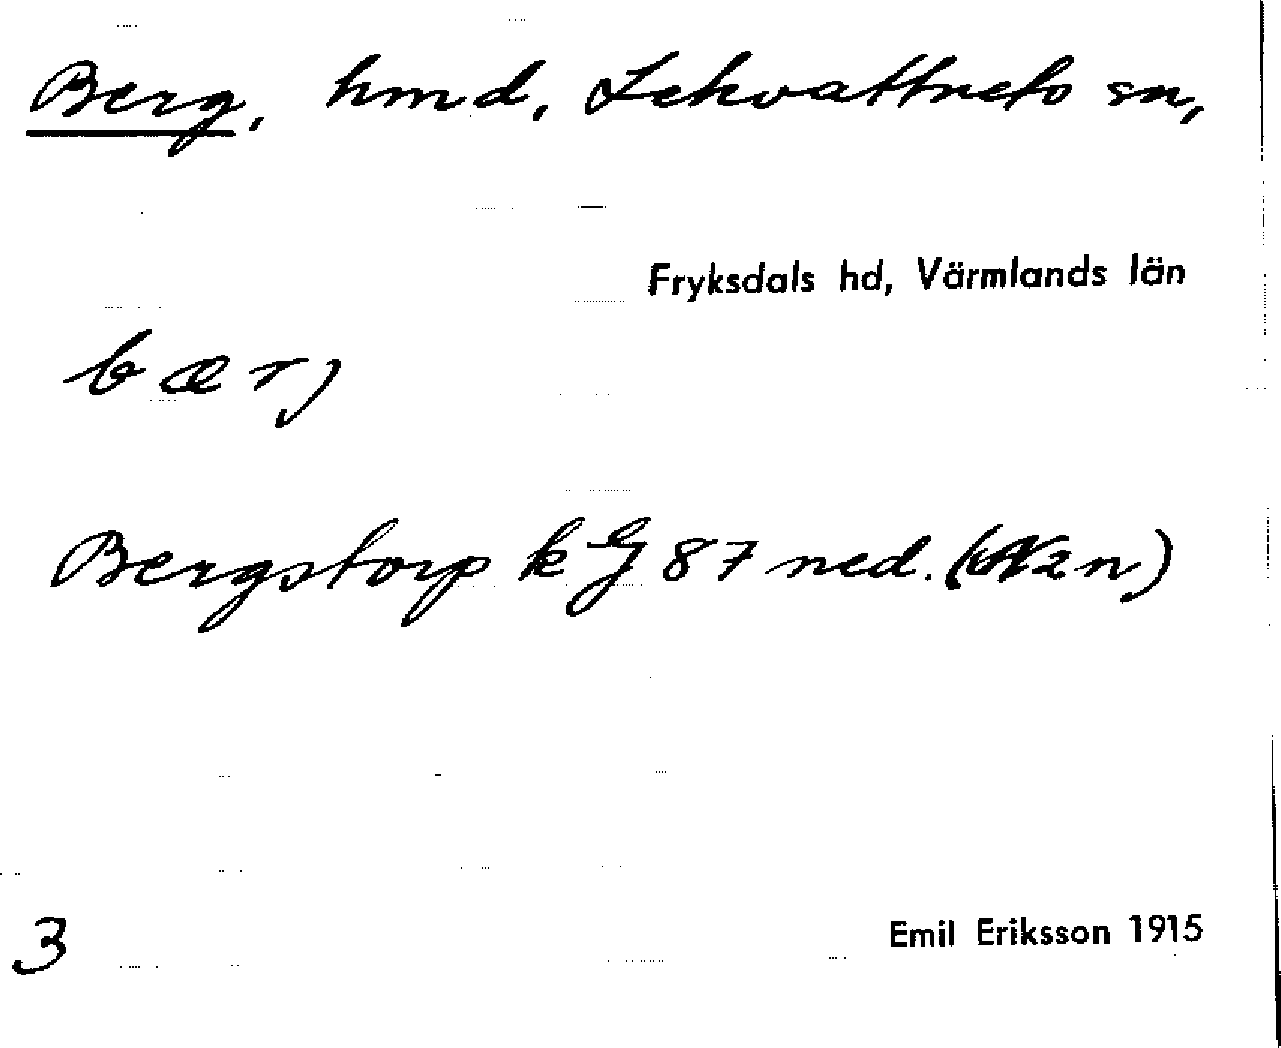 Berg, hmd, Lekvattnets sn,
Fryksdals hd, Värmlands län
bærj
Bergstorp k G 87 ned.
3
Emil Eriksson 1915